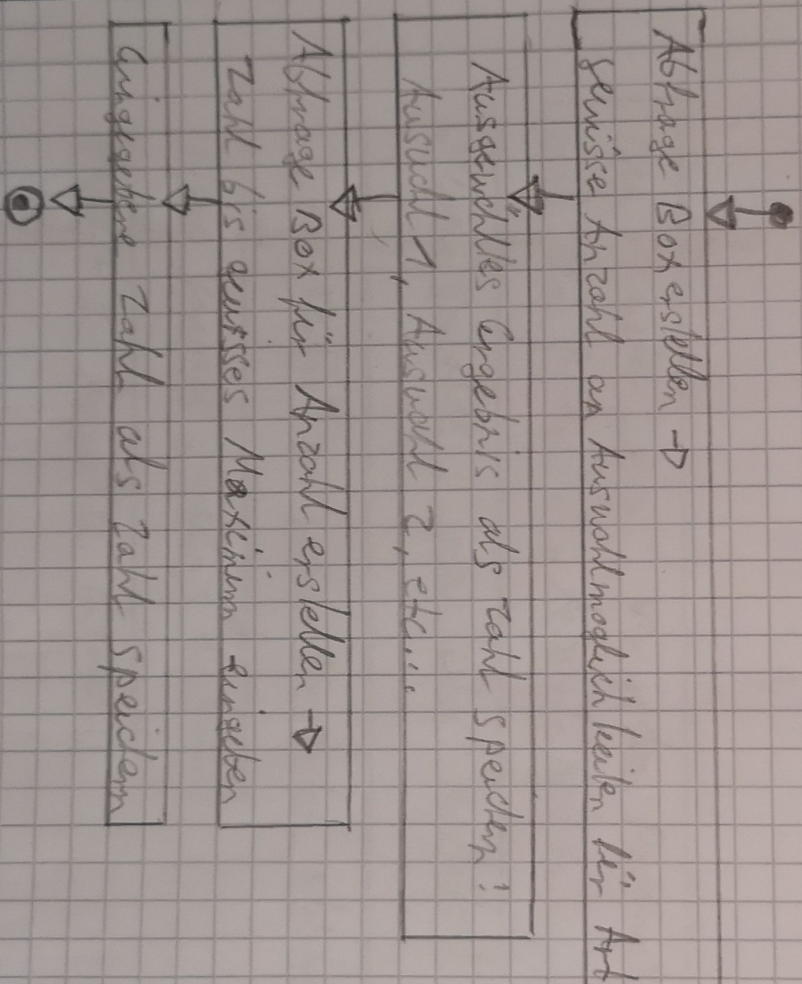 Abfrage Box erstellen →
gewisse Anzahl an Auswahlmöglichkeiten für Art
Ausgewähltes Ergebnis als Zahl speichern:
Auswahl 1, Auswahl 2, etc...
Abfrage Box für Anzahl erstellen →
Zahl bis gewisses Maximum eingeben
eingegebene Zahl als Zahl speichern